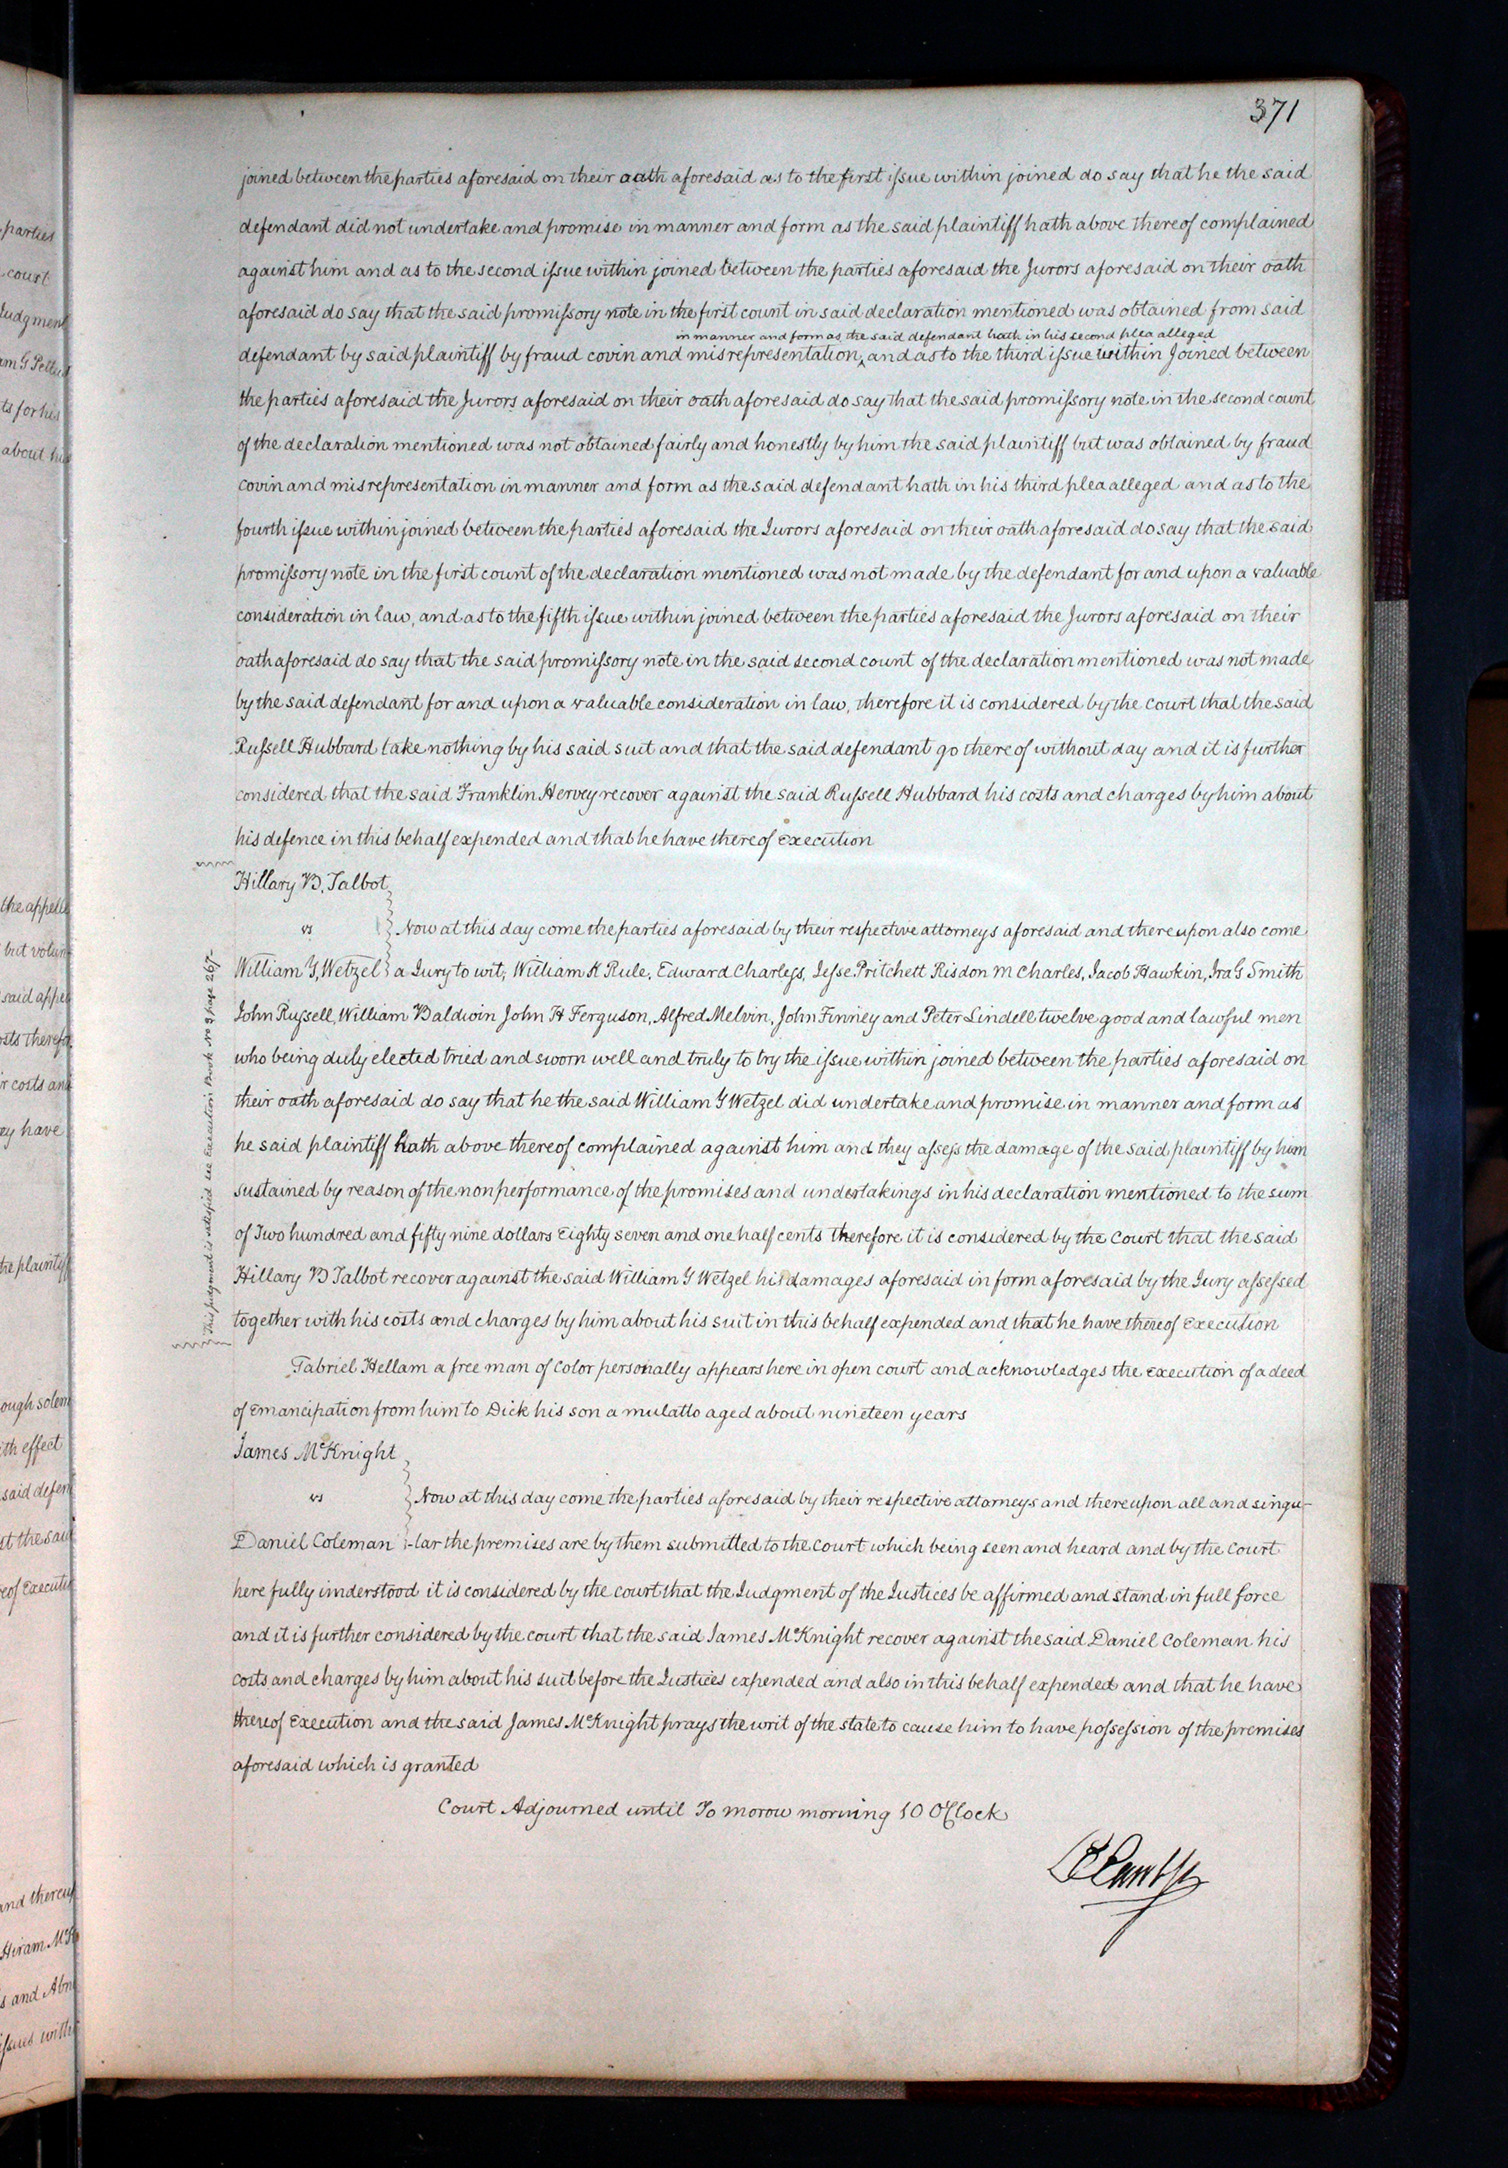 371
joined between the parties aforesaid on their oath aforesaid as to the first issue within joined do say that he the said
defendant did not undertake and promise in manner and form as the said plaintiff hath above thereof complained
against him and as to the second issue within joined between the parties aforesaid the Jurors aforesaid on their oath
aforesaid do say that the said promissory note in the first count in said declaration mentioned was obtained from said
in manner and form as the said defendant hath in his second plea alleged
defendant by said plaintiff by fraud covin and misrepresentation ^ and as to the third issue within Joined between
the parties aforesaid the Jurors aforesaid on their oath aforesaid do say that the said promissory note in the second count
of the declaration mentioned was not obtained fairly and honestly by him the said plaintiff but was obtained by fraud
covin and misrepresentation in manner and form as the said defendant hath in his third plea alleged and as to the
fourth issue within joined between the parties aforesaid the Jurors aforesaid on their oath aforesaid do say that the said
promissory note in the first count of the declaration mentioned was not made by the defendant for and upon a valuable
consideration in law, and as to the fifth issue within joined between the parties aforesaid the Jurors aforesaid on their
oath aforesaid do say that the said promissory note in the said second count of the declaration mentioned was not made
by the said defendant for and upon a valuable consideration in law, therefore it is considered by the Court that the said
Russell Hubbard take nothing by his said suit and that the said defendant go thereof without day and it is further
considered that the said Franklin Hervey recover against the said Russell Hubbard his costs and charges by him about
his defence in this behalf expended and that he have thereof Execution
Hillary B. Talbot
vs } Now at this day come the parties aforesaid by their respective attorneys aforesaid and thereupon also come
William G. Wetzel } a Jury to wit, William K Rule, Edward Charless, Jesse Pritchett Risdon M Charles, Jacob Hawkin, Ira G Smith
John Russell, William Baldwin John H Ferguson, Alfred Melvin, John Finney and Peter Lindell twelve good and lawful men
who being duly elected tried and sworn well and truly to try the issue within joined between the parties aforesaid on
their oath aforesaid do say that he the said William G Wetzel did undertake and promise in manner and form as
he said plaintiff hath above thereof complained against him and they assess the damage of the said plaintiff by him
sustained by reason of the nonperformance of the promises and undertakings in his declaration mentioned to the sum
of Two hundred and fifty nine dollars Eighty seven and one half cents therefore it is considered by the Court that the said
Hillary B Talbot recover against the said William G Wetzel his damages aforesaid in form aforesaid by the Jury assessed
together with his costs and charges by him about his suit in this behalf expended and that he have thereof Execution
This judgment is satisfied see Execution Book No 9 page 267-
Gabriel Hellam a free man of Color personally appears here in open court and acknowledges the execution of a deed
of Emancipation from him to Dick his son a mulatto aged about nineteen years
James McKnight
vs } Now at this day come the parties aforesaid by their respective attorneys and thereupon all and singu-
Daniel Coleman } -lar the premises are by them submitted to the Court which being seen and heard and by the Court
here fully understood it is considered by the court that the Judgment of the Justices be affirmed and stand in full force
and it is further considered by the court that the said James McKnight recover against the said Daniel Coleman his
costs and charges by him about his suit before the Justices expended and also in this behalf expended and that he have
thereof Execution and the said James McKnight prays the writ of the state to cause him to have possession of the premises
aforesaid which is granted
Court Adjourned until To morow morning 10 O'Clock
parties
court
Judgment
ts for his
about his
the appelle
but volun
said appe
osts thereof
r costs and
ey have
he plaintiff
ough solem
ith effect
said defen
st the said
eof Execution
and thereup
Hiram McK
s and Abn
issues within